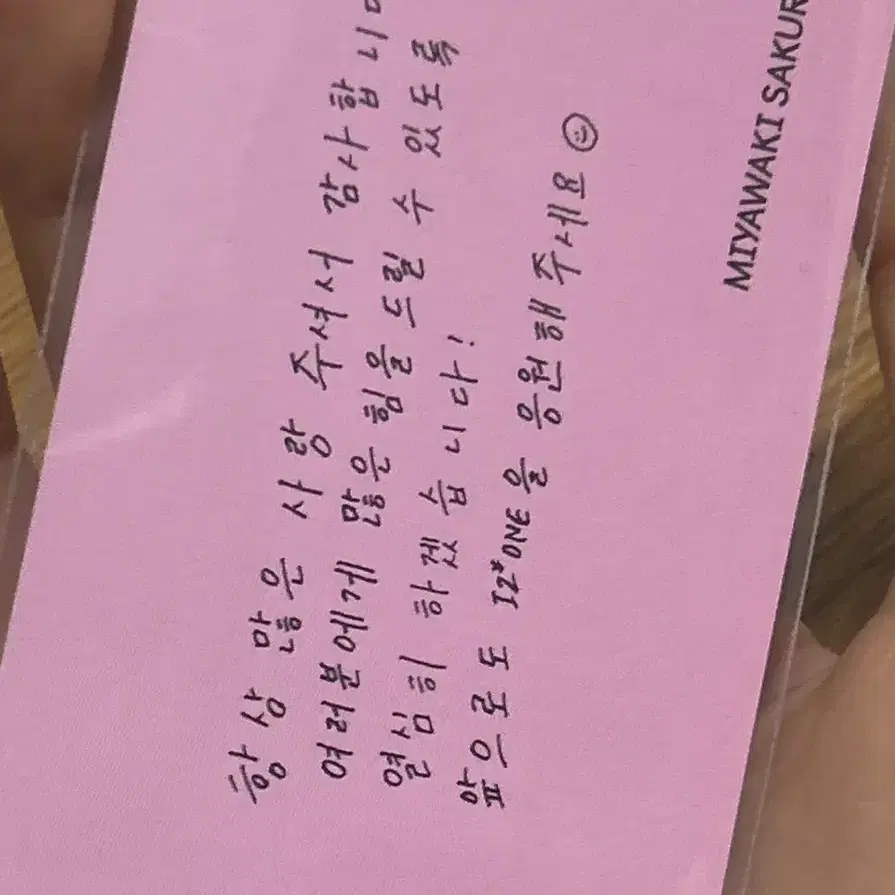 항상 많은 사랑 주셔서 감사합니
여러분에게 많은 힘을 드릴 수 있도록
열심히 하겠습니다!
앞으로도 IZ*ONE을 응원해주세요
MIYAWAKI SAKUR